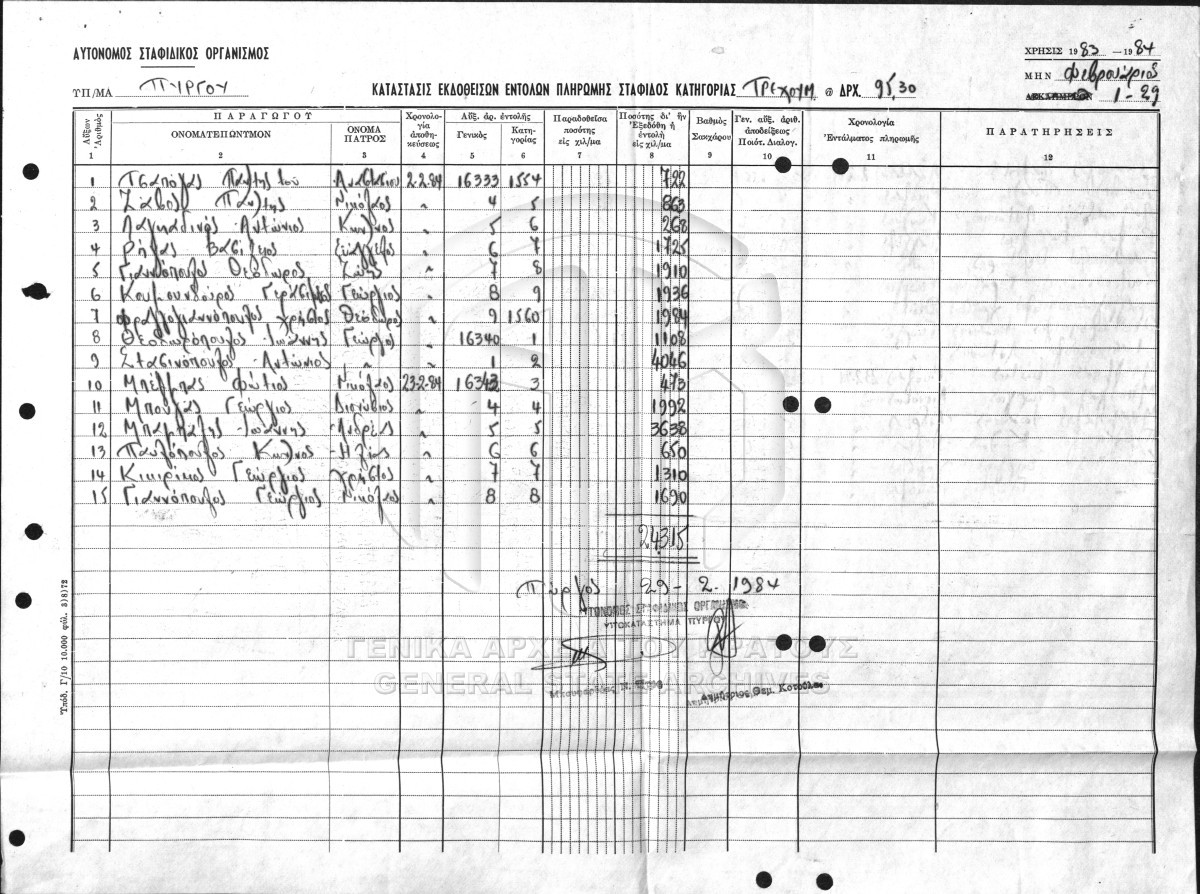 ΑΥΤΟΝΟΜΟΣ ΣΤΑΦΙΔΙΚΟΣ ΟΡΓΑΝΙΣΜΟΣ
ΧΡΗΣΙΣ 1983 — 1984
ΤΠ/ΜΑ ΠΥΡΓΟΥ
ΚΑΤΑΣΤΑΣΙΣ ΕΚΔΟΘΕΙΣΩΝ ΕΝΤΟΛΩΝ ΠΛΗΡΩΜΗΣ ΣΤΑΦΙΔΟΣ ΚΑΤΗΓΟΡΙΑΣ ΤΡΕΧΟΥΜ @ ΔΡΧ. 95,30
ΜΗΝ Φεβρουάριος
1-29
Αὔξων Ἀριθμὸς
ΠΑΡΑΓΩΓΟΥ
ΟΝΟΜΑΤΕΠΩΝΤΜΟΝ
ΟΝΟΜΑ ΠΑΤΡΟΣ
Χρονολογία ἀποθηκεύσεως
Αὔξ. ἀρ. ἐντολῆς
Γενικὸς
Κατηγορίας
Παραδοθεῖσα ποσότης εἰς χιλ/μα
Ποσότης δι' ἣν Ἐξεδόθη ἡ ἐντολὴ εἰς χιλ/μα
Βαθμὸς Σακχάρου
Γεν. αὔξ. ἀριθ. ἀποδείξεως Ποιότ. Διαλογ.
Χρονολογία Ἐντάλματος πληρωμῆς
ΠΑΡΑΤΗΡΗΣΕΙΣ
1 2 3 4 5 6 7 8 9 10 11 12
1 Τσαπόγας Παν/της του Αναστάσιος 2-2-84 16333 1554 722
2 Ζάβος Παν/της Νικόλαος " 4 5 863
3 Λαγκαδινός Αντώνιος Κων/νος " 5 6 268
4 Ρήγας Βασίλειος Ευάγγελος " 6 7 1725
5 Γιαννόπουλος Θεόδωρος Σώτης " 7 8 1910
6 Κουμουνδούρος Γεράσιμος Γεώργιος " 8 9 1936
7 Φραγγογιαννόπουλος Χρήστος Θεόδωρος " 9 1560 1984
8 Θεοδωρόπουλος Ιωάννης Γεώργιος 16340 1 1108
9 Στασινόπουλος Αντώνιος " " 1 2 4046
10 Μπέλμπας Φώτιος Νικόλαος 23-2-84 16343 3 473
11 Μπουγάς Γεώργιος Διονύσιος " 4 4 1992
12 Μπαμπάλης Ιωάννης Ανδρέας " 5 5 3638
13 Παυλόπουλος Κων/νος Ηλίας " 6 6 650
14 Κικιρίκος Γεώργιος Χρήστος " 7 7 1310
15 Γιαννόπουλος Γεώργιος Νικόλαος " 8 8 1690
24315
Πύργος 29-2-1984
ΑΥΤΟΝΟΜΟΣ ΣΤΑΦΙΔΙΚΟΣ ΟΡΓΑΝΙΣΜΟΣ
ΥΠΟΚΑΤΑΣΤΗΜΑ ΠΥΡΓΟΥ
ΓΕΝΙΚΑ ΑΡΧΕΙΑ ΤΟΥ ΚΡΑΤΟΥΣ
GENERAL STATE ARCHIVES
Θεμ. Κοτσόλας
Ὑπόδ. Γ/10 10.000 φύλ. 3)8)72